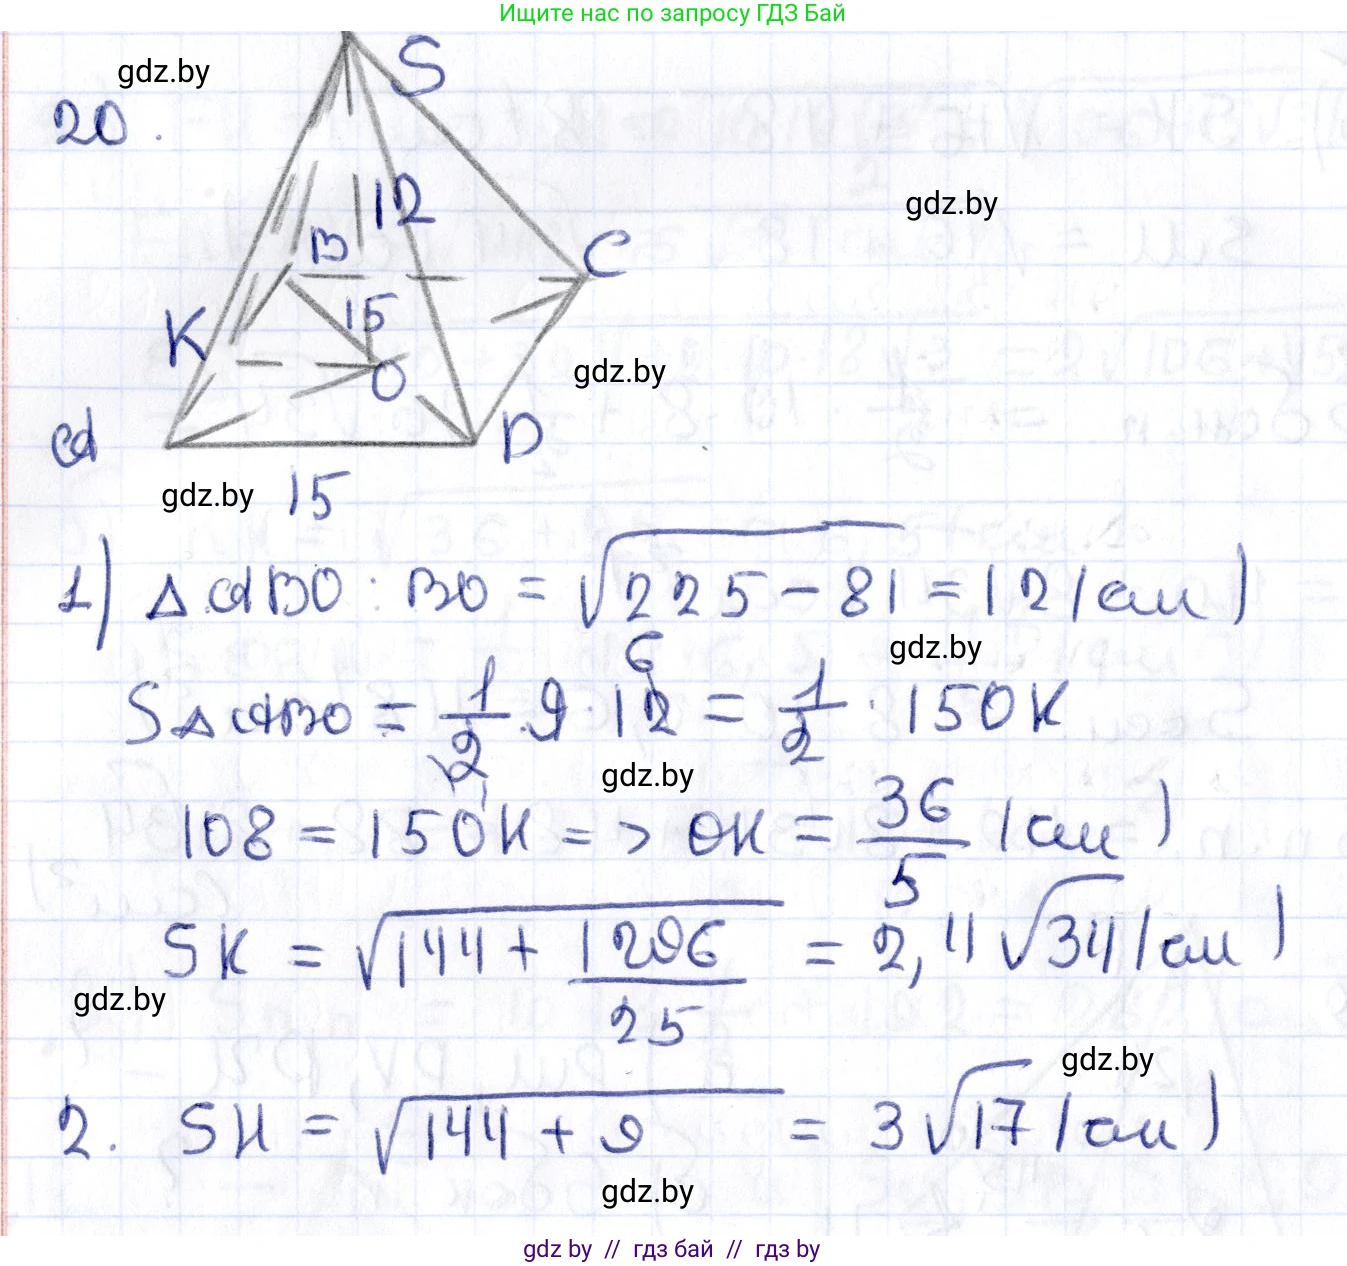 Ищите нас по запросу ГДЗ Бай
gdz.by
S
20.
12
gdz.by
B
C
15
K
gdz.by
O
A
D
gdz.by
15
1) Δ ABO : BO = √225 - 81 = 12 (см)
gdz.by
SΔABO = 1/2 · 9 · 12 6 = 1/2 · 15OK
gdz.by
108 = 15OK => OK = 36/5 (см)
SK = √144 + 1296/25 = 2,4 √34 (см)
gdz.by
gdz.by
2. SH = √144 + 9 = 3 √17 (см)
gdz.by
gdz by // гдз бай // гдз by